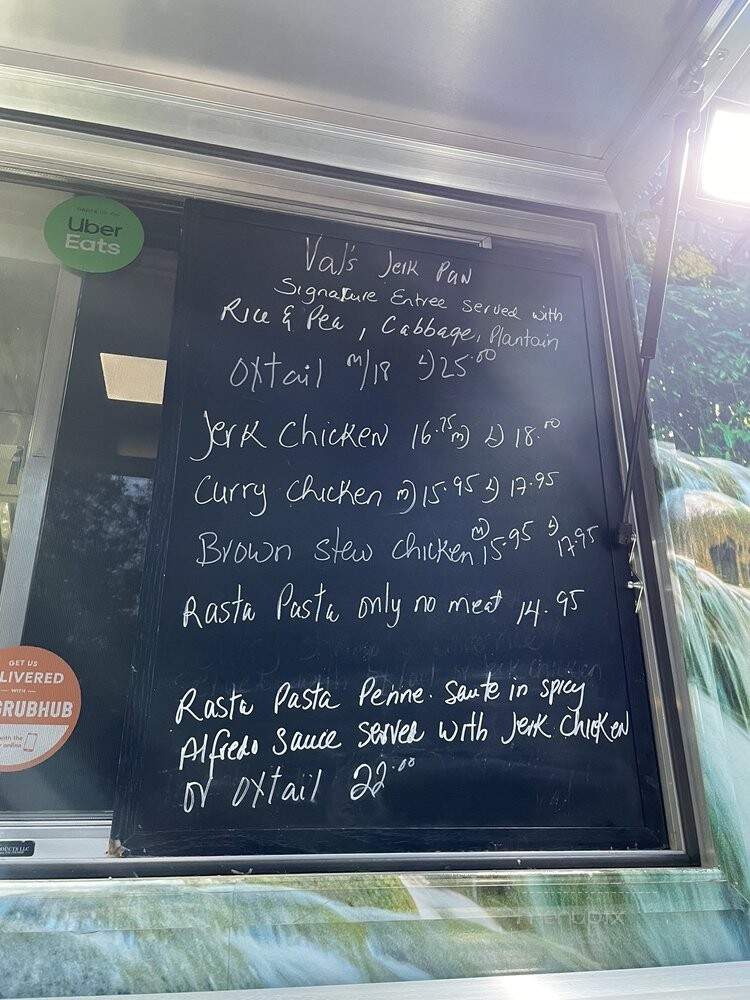 Uber
Eats
Val's Jerk Pan
Signature Entree served with
Rice & Pea, Cabbage, Plantain
Oxtail M/18 L)25.00
Jerk Chicken 16.75 m) L) 18.00
Curry Chicken m)15.95 L) 17.95
Brown Stew chicken (M) 15.95 L) 17.95
Rasta Pasta only no meat 14.95
Rasta Pasta Penne. Saute in spicy
Alfredo Sauce Served with Jerk Chicken
Or Oxtail 22.00
GET US
LIVERED
WITH
GRUBHUB
with the
online